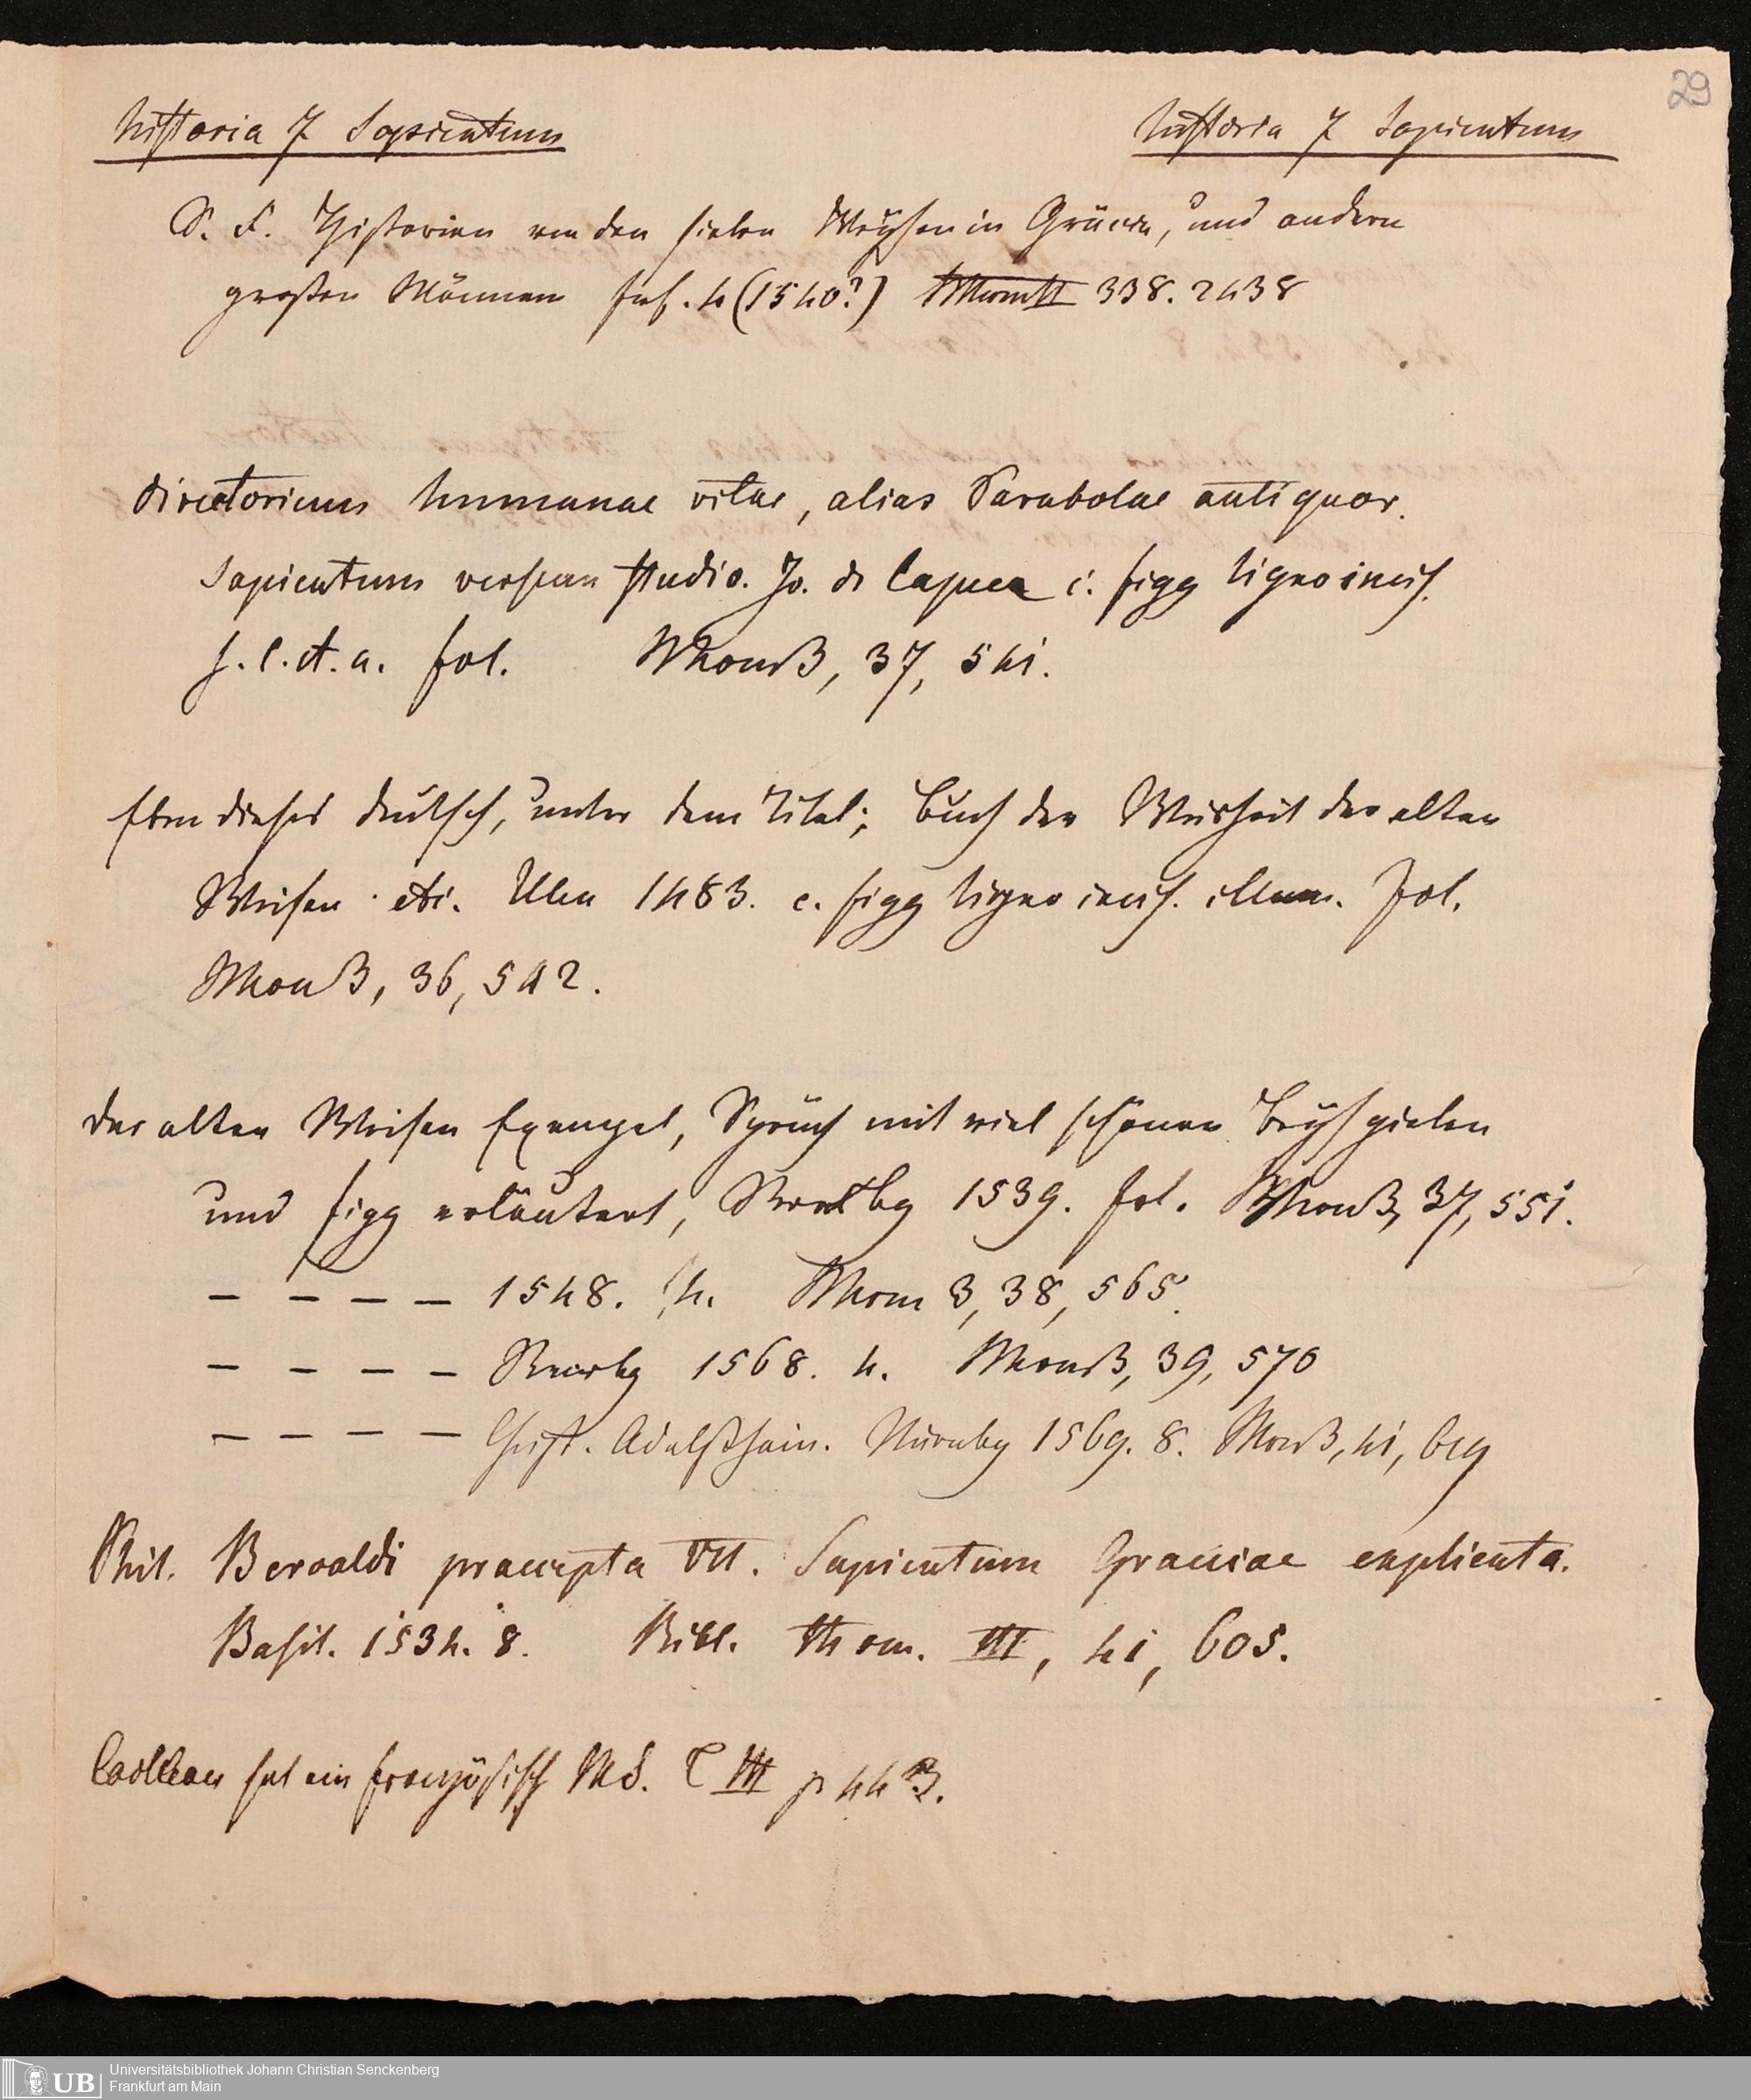 29
historia 7 Sapientum historia 7 Sapientum
S. F. Historien von den sieben Weysen in Gräcia, und andern
großen Männern 4 (1540?) 338. 2438
directorium humanae vitae, alias Parabolae antiquor.
Sapientum studio. Jo. de Capua c. figg ligno incis.
s. l. et. a. fol. Thom 3, 37, 541.
Eben dieses deutsch, unter dem Titel; Buch der Weisheit der alten
Weisen etc. Ulm 1483. c. figg ligno incis. illum. fol.
Thom 3, 36, 542.
der alten Weisen Exempel, Sprüch mit viel schönen Beyspielen
und figg erläutert, 1539. fol. Thom 3, 37, 551.
– – – – 1548. 4. Thom 3, 38, 565.
– – – – 1568. 4. Thom 3, 39, 570
– – – – Nürnbg 1569. 8. Thom 3, 41, 619
Phil. Beroaldi praecepta VII. Sapientum Graeciae explicata.
Basil. 1534. 8. Bibl. Thom. III, 41, 605.
hat ein französisch MS. T III p 443.
UB Universitätsbibliothek Johann Christian Senckenberg
Frankfurt am Main